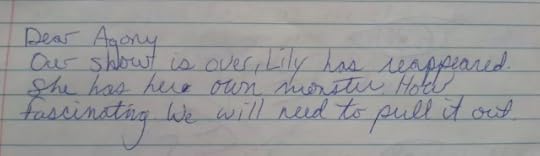 Dear Agony
Our show is over, Lily has reappeared.
She has here own monster. How
fascinating We will need to pull it out.